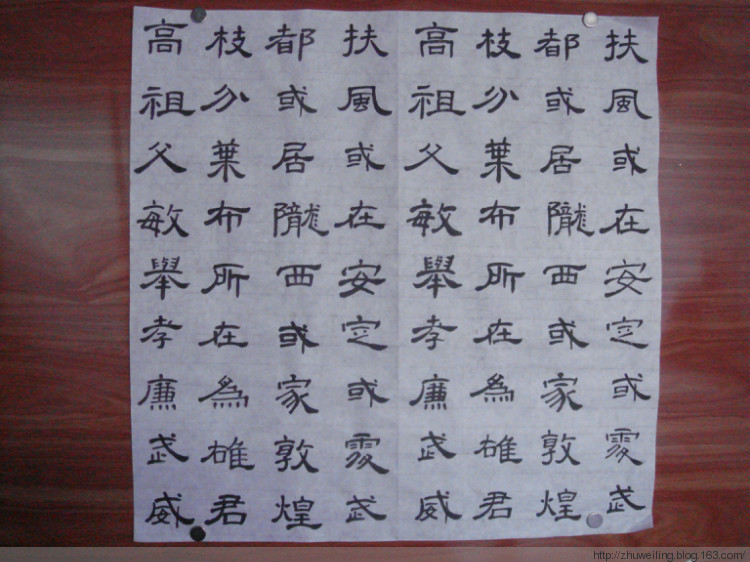 扶風或在安定或處武
都或居隴西或家敦煌
枝分葉布所在爲雄君
高祖父敏舉孝廉武威
扶風或在安定或處武
都或居隴西或家敦煌
枝分葉布所在爲雄君
高祖父敏舉孝廉武威
http://zhuweiling.blog.163.com/